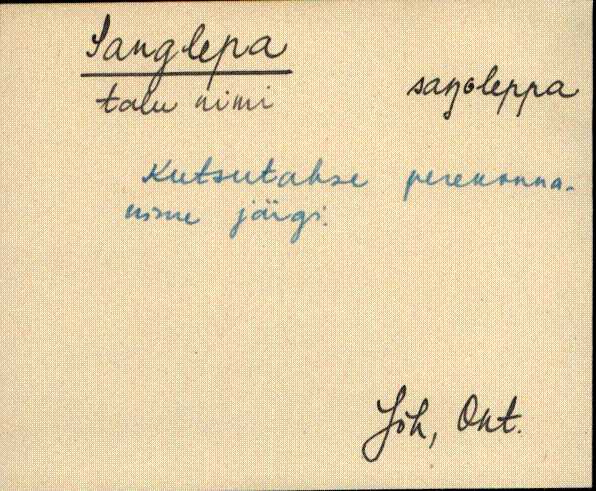 Sanglepa
talu nimi saŋoleppa
Kutsutakse perekonna-
nime järgi.
Jõh, Ont.